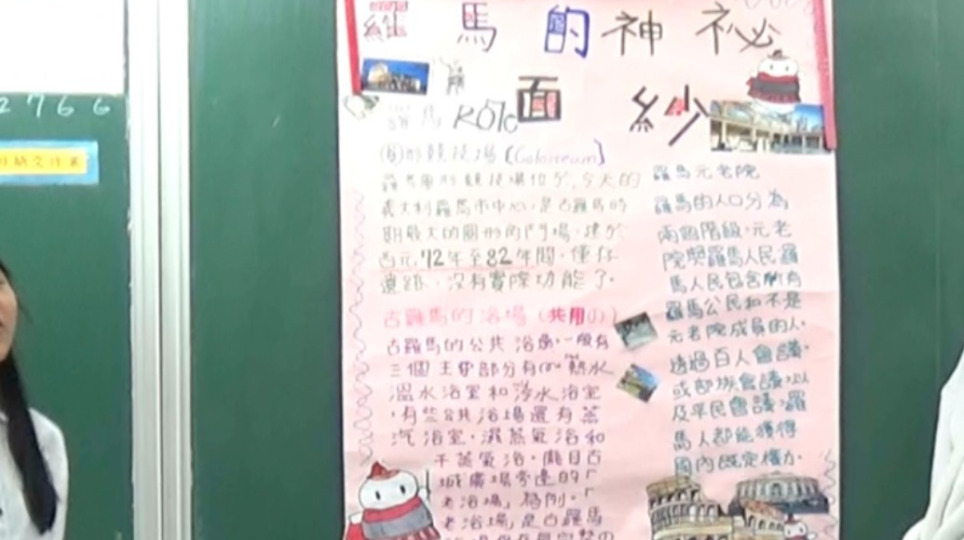 2766
羅馬的神祕
面紗
羅馬 
圓形競技場
羅馬圓形競技場位於,今天的
義大利羅馬市中心,是古羅馬時
期最大的圓形角鬥場,建於
西元72年至82年間,僅存
遺跡,沒有實際功能了。
古羅馬的浴場(共用の)
古羅馬的公共浴場,一般有
三個主要部分有 熱水
溫水浴室和冷水浴室
,有些公共浴場還有蒸
汽浴室,濕蒸氣浴和
干蒸氣浴,龐貝古
城廣場旁邊的「
老浴場」為例。「
老浴場」是古羅馬
羅馬元老院
羅馬的人口分為
兩個階級,元老
院與羅馬人民羅
馬人民包含所有
羅馬公民和不是
元老院成員的人。
透過百人會議,
或部族會議以
及平民會議羅
馬人都能獲得
國內既定權力。